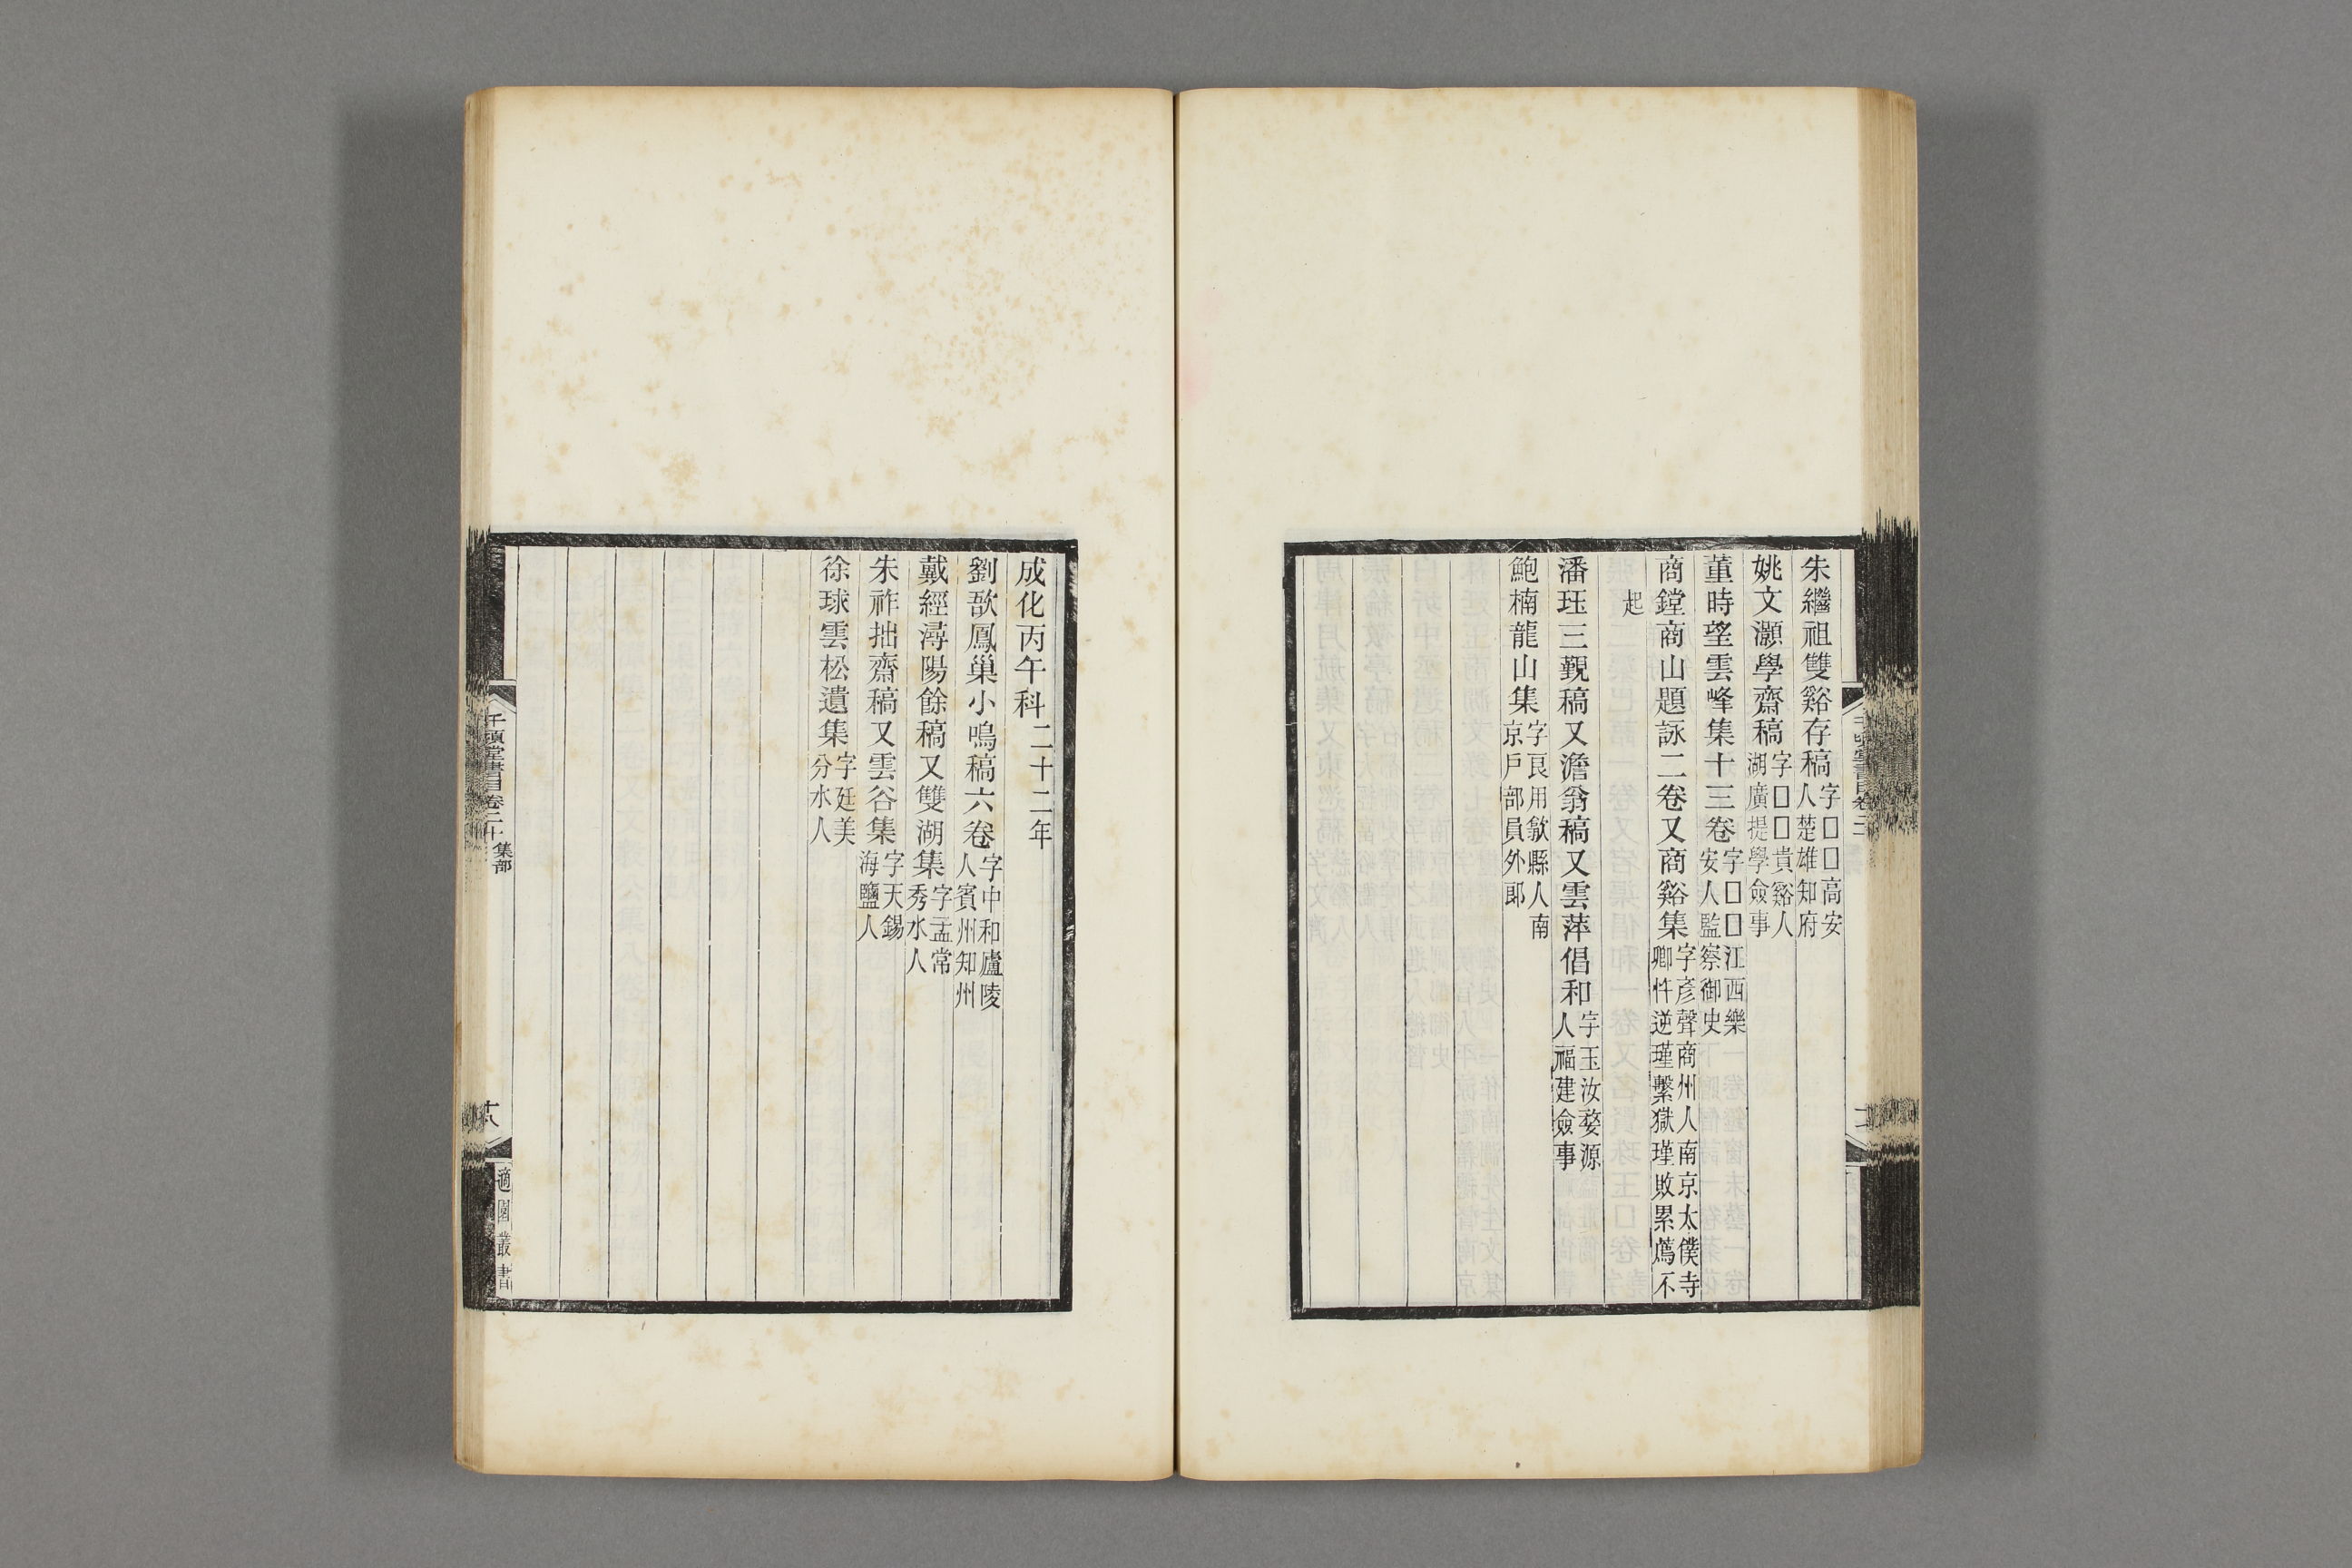 朱繼祖雙谿存稿字□□高安人楚雄知府
姚文灝學齋稿字□□貴谿人湖廣提學僉事
董時望雲峰集十三卷字□□江西樂安人監察御史
商鏜商山題詠二卷又商谿集字彥聲商州人南京太僕寺卿忤逆瑾繫獄瑾敗累薦不
起
潘珏三覲稿又澹翁稿又雲萍倡和字玉汝婺源人福建僉事
鮑楠龍山集字艮用歙縣人南京戶部員外郎
成化丙午科二十二年
劉㰸鳳巢小鳴稿六卷字中和廬陵人賓州知州
戴經潯陽餘稿又雙湖集字孟常秀水人
朱祚拙齋稿又雲谷集字天錫海鹽人
徐球雲松遺集字廷美分水人
千頃堂書目卷二十 集部
十八
適園叢書